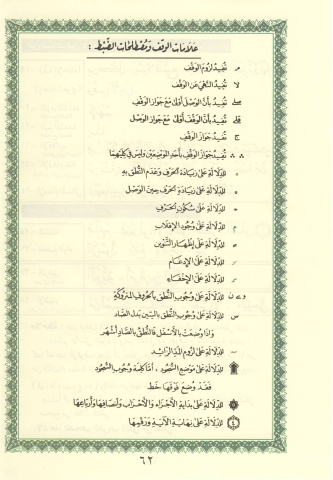 عَلَامَاتُ الوَقْفِ وَمُصْطَلَحَاتُ الضَّبْطِ :
مـ تُفِيدُ لُزُومَ الوَقْفِ
لا تُفِيدُ النَّهْيَ عَنِ الوَقْفِ
صلے تُفِيدُ بِأَنَّ الوَصْلَ أَوْلَىٰ مَعَ جَوَازِ الوَقْفِ
قلے تُفِيدُ بِأَنَّ الوَقْفَ أَوْلَىٰ مَعَ جَوَازِ الوَصْلِ
ج تُفِيدُ جَوَازَ الوَقْفِ
∴ ∴ تُفِيدُ جَوَازَ الوَقْفِ بِأَحَدِ المَوْضِعَيْنِ وَلَيْسَ فِي كِلَيْهِمَا
لِلدِّلَالَةِ عَلَىٰ زِيَادَةِ الحَرْفِ وَعَدَمِ النُّطْقِ بِهِ
لِلدِّلَالَةِ عَلَىٰ زِيَادَةِ الحَرْفِ حِينَ الوَصْلِ
لِلدِّلَالَةِ عَلَىٰ سُكُونِ الحَرْفِ
م لِلدِّلَالَةِ عَلَىٰ وُجُودِ الإِقْلَابِ
لِلدِّلَالَةِ عَلَىٰ إِظْهَارِ التَّنْوِينِ
لِلدِّلَالَةِ عَلَىٰ الإِدْغَامِ
لِلدِّلَالَةِ عَلَىٰ الإِخْفَاءِ
لِلدِّلَالَةِ عَلَىٰ وُجُوبِ النُّطْقِ بِالحُرُوفِ المَتْرُوكَةِ
س لِلدِّلَالَةِ عَلَىٰ وُجُوبِ النُّطْقِ بِالسِّينِ بَدَلَ الصَّادِ
وَإِذَا وُضِعَتْ بِالأَسْفَلِ فَالنُّطْقُ بِالصَّادِ أَشْهَرُ
~ لِلدِّلَالَةِ عَلَىٰ لُزُومِ المَدِّ الزَّائِدِ
۩ لِلدِّلَالَةِ عَلَىٰ مَوْضِعِ السُّجُودِ ، أَمَّا كَلِمَةُ وُجُوبِ السُّجُودِ
فَقَدْ وُضِعَ فَوْقَهَا خَطٌّ
۞ لِلدِّلَالَةِ عَلَىٰ بِدَايَةِ الأَجْزَاءِ وَالأَحْزَابِ وَأَنْصَافِهَا وَأَرْبَاعِهَا
لِلدِّلَالَةِ عَلَىٰ نِهَايَةِ الآيَةِ وَرَقْمِهَا
٦٢